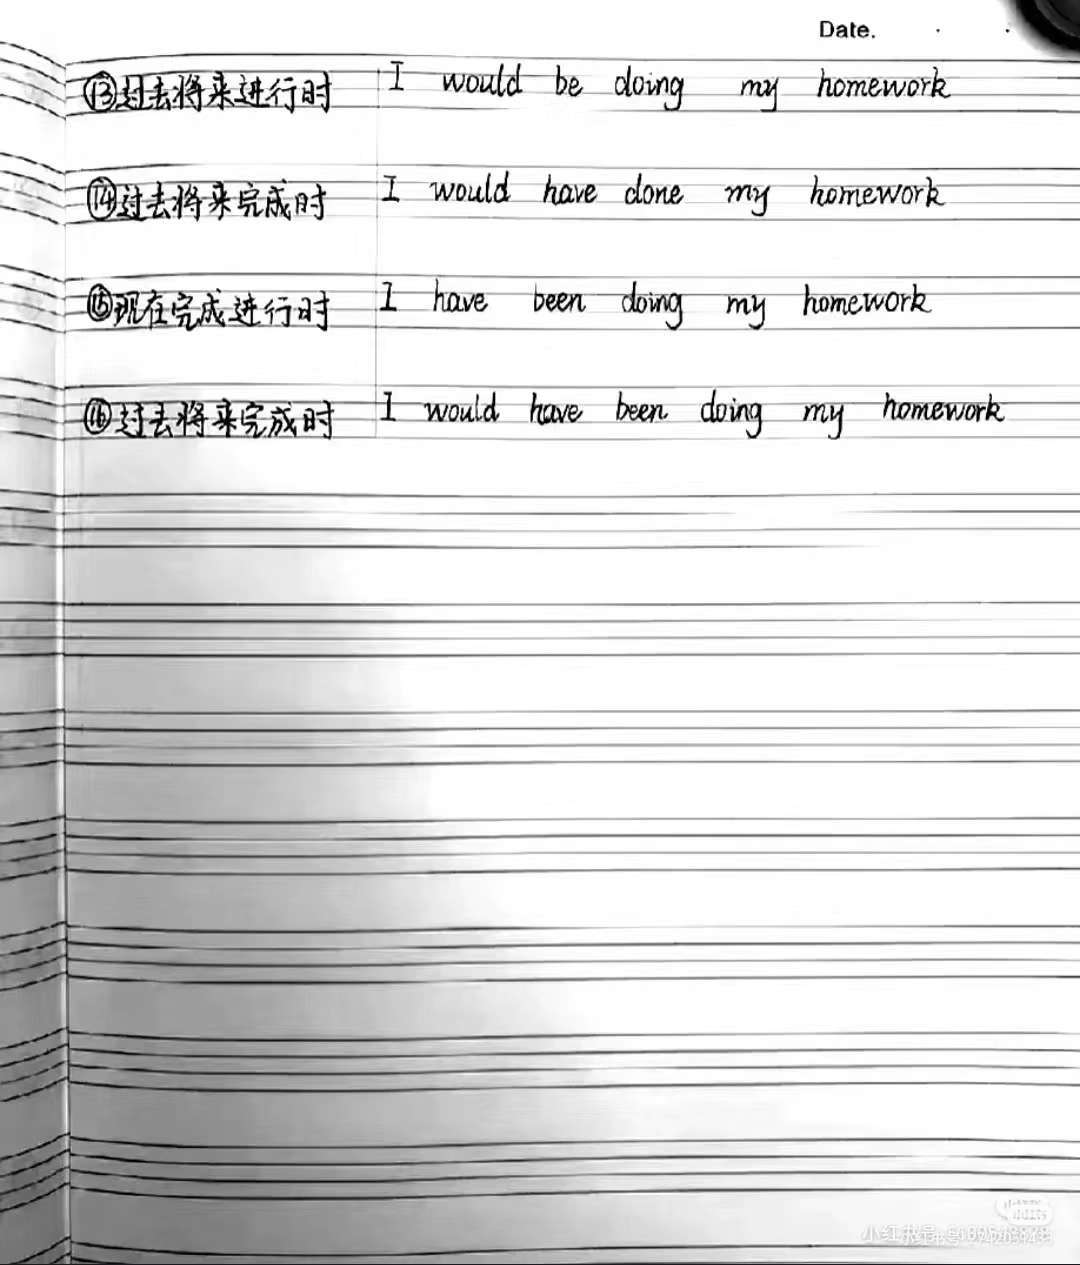 Date.
⑬过去将来进行时 I would be doing my homework
⑭过去将来完成时 I would have done my homework
⑮现在完成进行时 I have been doing my homework
⑯过去将来完成时 I would have been doing my homework
小红书号: